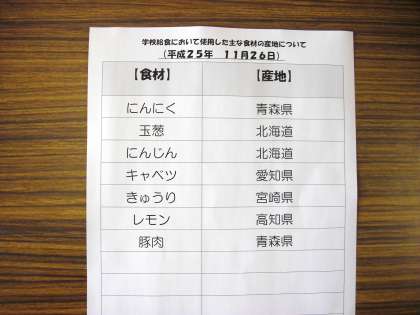 学校給食において使用した主な食材の産地について
（平成２５年　１１月２６日）
【食材】　【産地】
にんにく　青森県
玉葱　北海道
にんじん　北海道
キャベツ　愛知県
きゅうり　宮崎県
レモン　高知県
豚肉　青森県